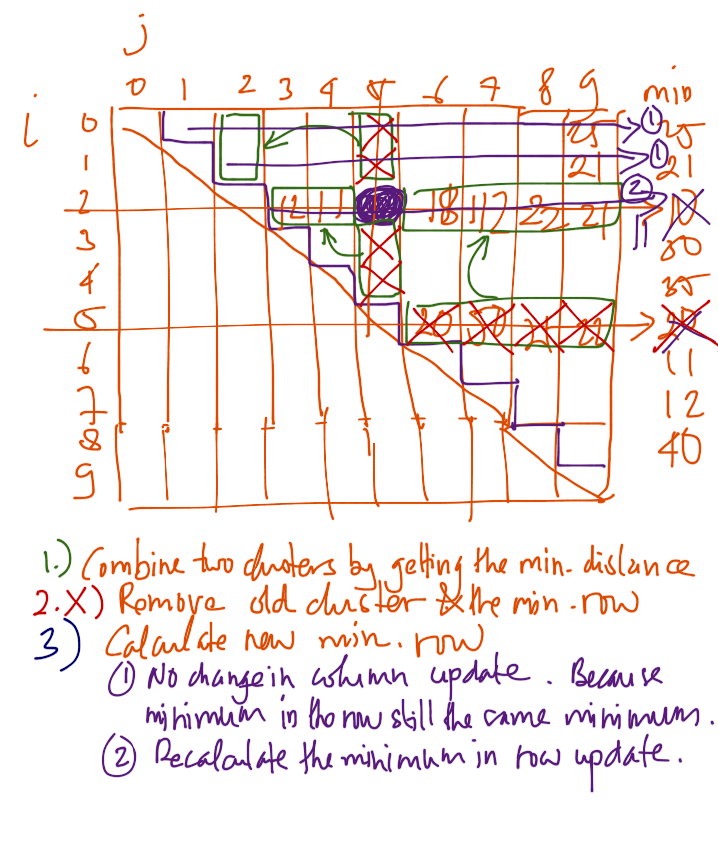 j
0 1 2 3 4 5 6 7 8 9 min
i
0 25 ① 25
1 21 ① 21
2 12 11 18 17 22 21 ② 10
3 30
4 35
5 20 50 21 22 20
6 11
7 12
8 40
9
1.) Combine two clusters by getting the min. distance
2.X) Remove old cluster & the min. row
3) Calculate new min. row
① No change in column update. Because
minimum in the row still the same minimums.
② Recalculate the minimum in row update.